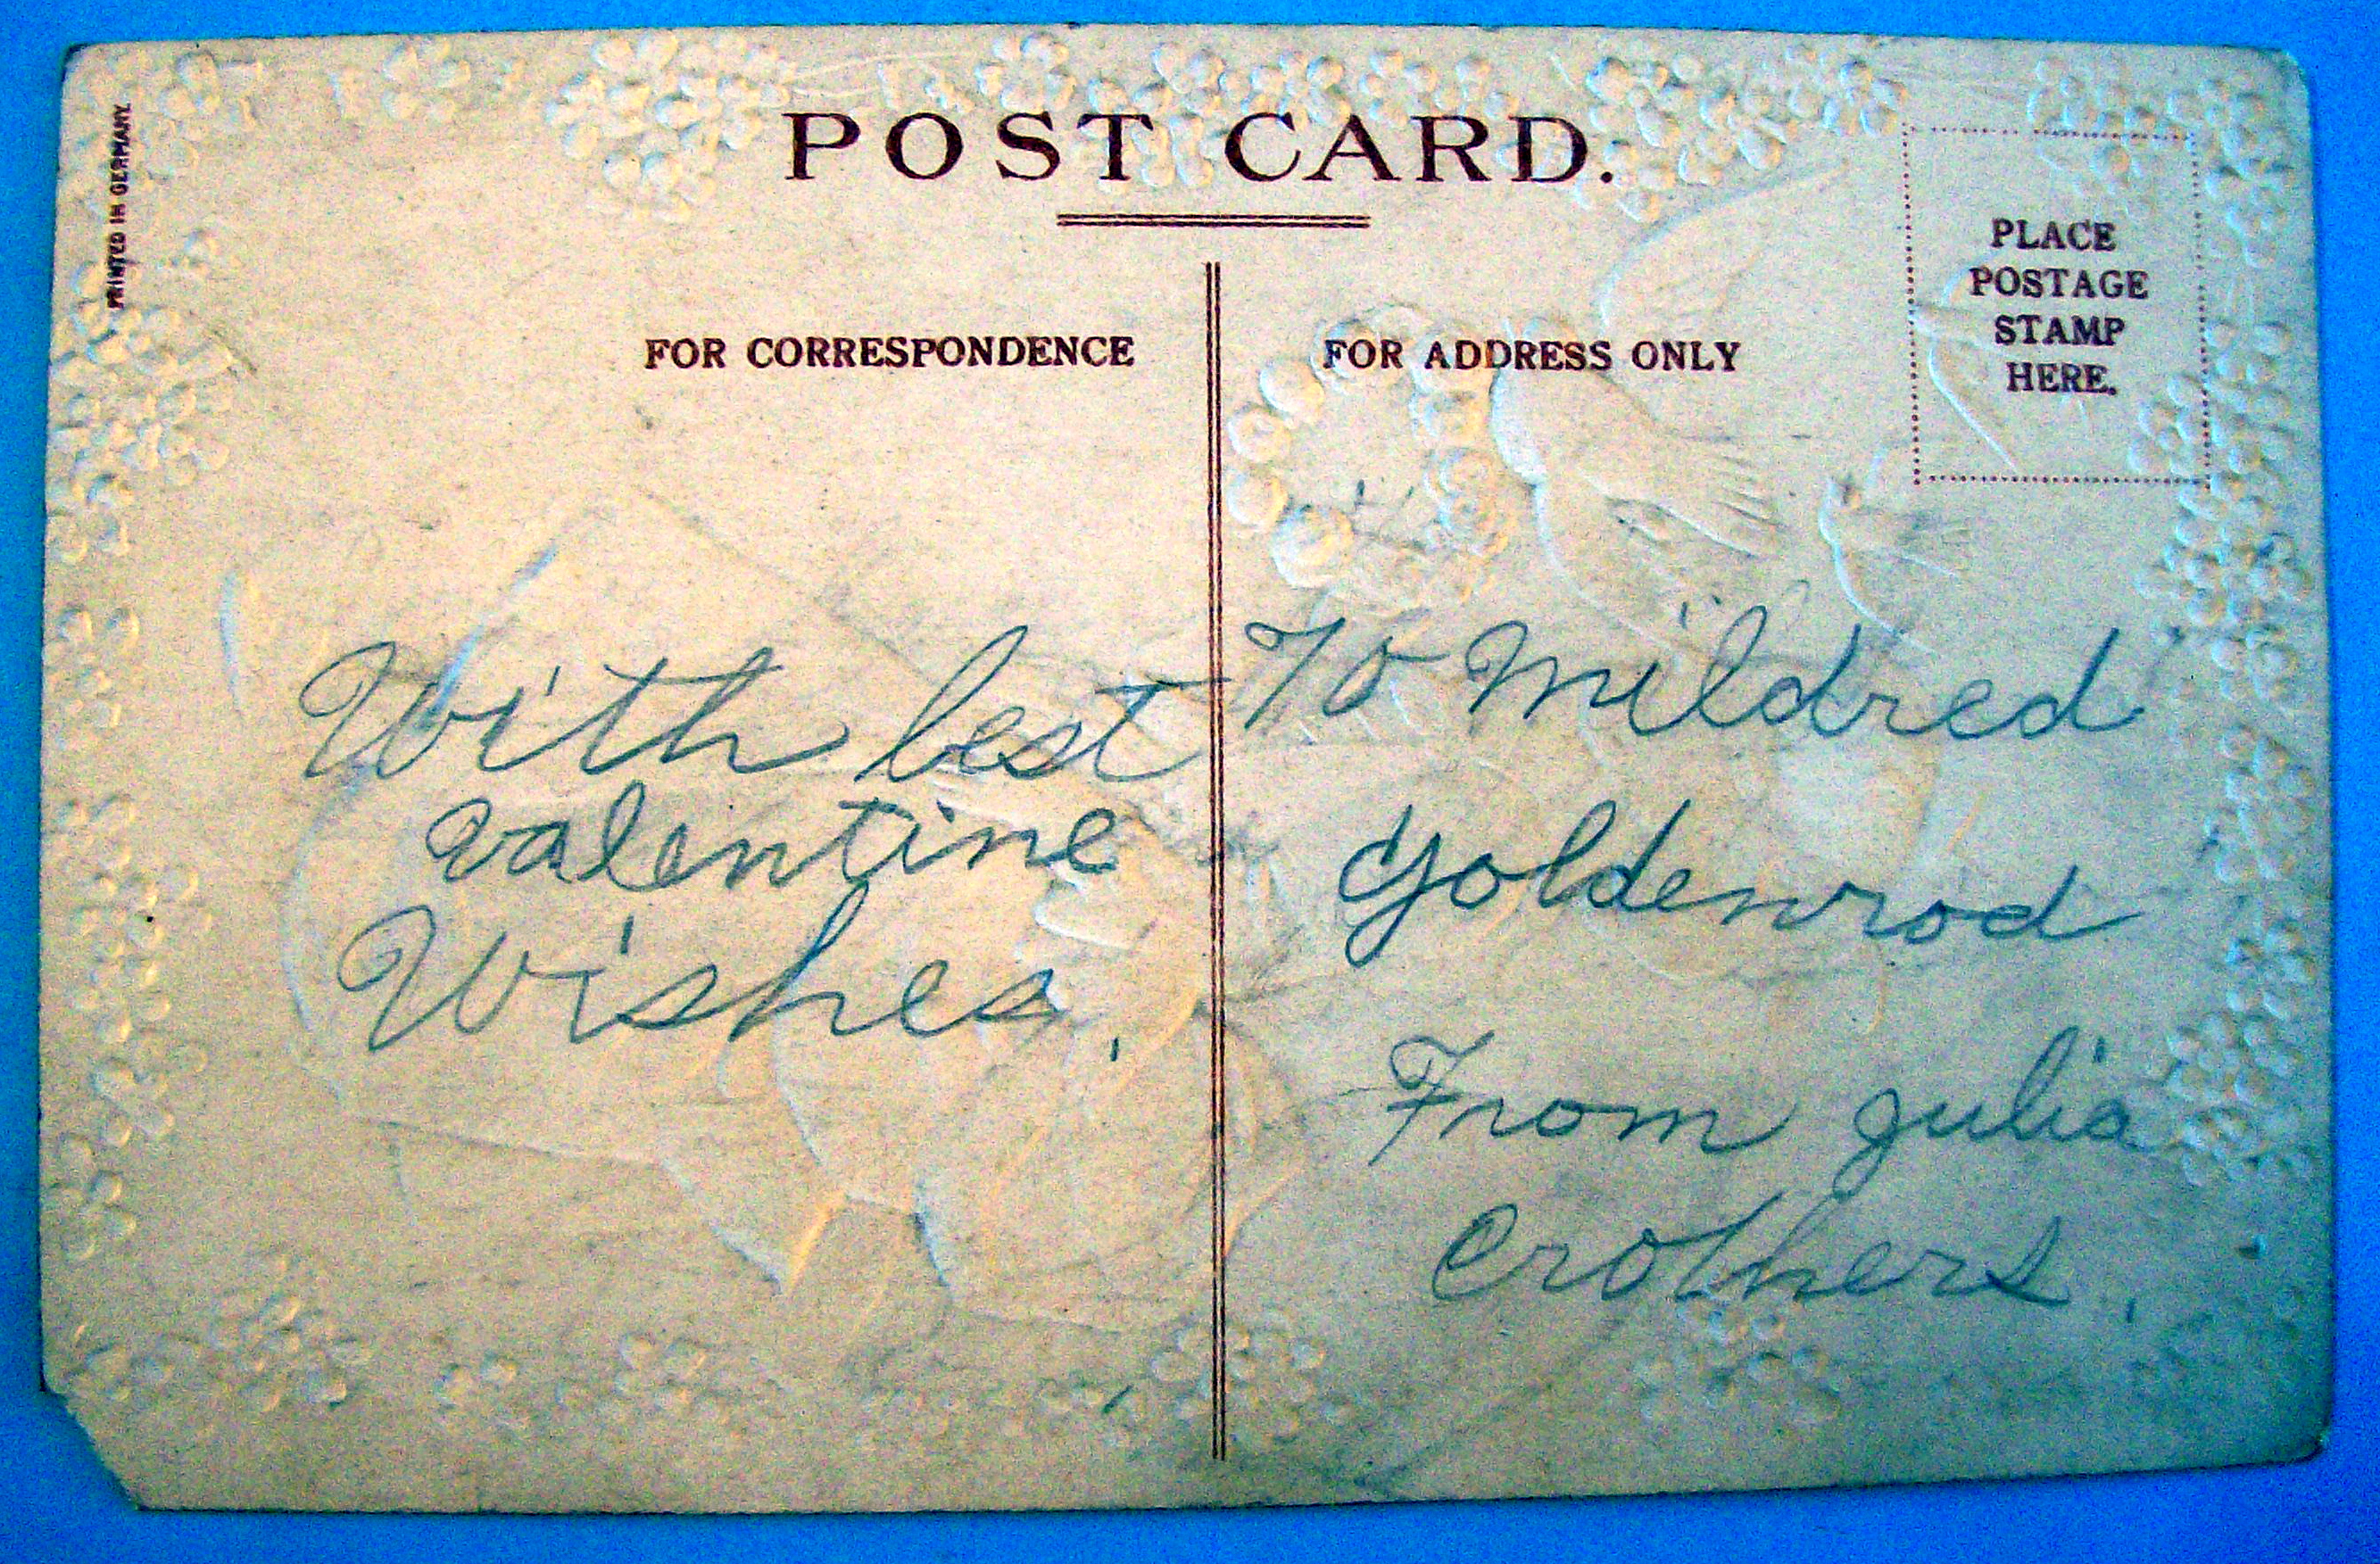 POST CARD.
PRINTED IN GERMANY
FOR CORRESPONDENCE
With best
valentine
Wishes.
FOR ADDRESS ONLY
PLACE
POSTAGE
STAMP
HERE.
To Mildred
Goldenrod
From Julia
Crothers.